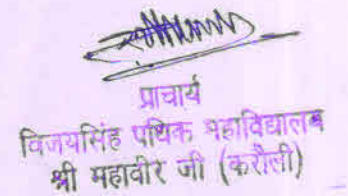 प्राचार्य
विजयसिंह पथिक महाविद्यालय
श्री महावीर जी (करौली)